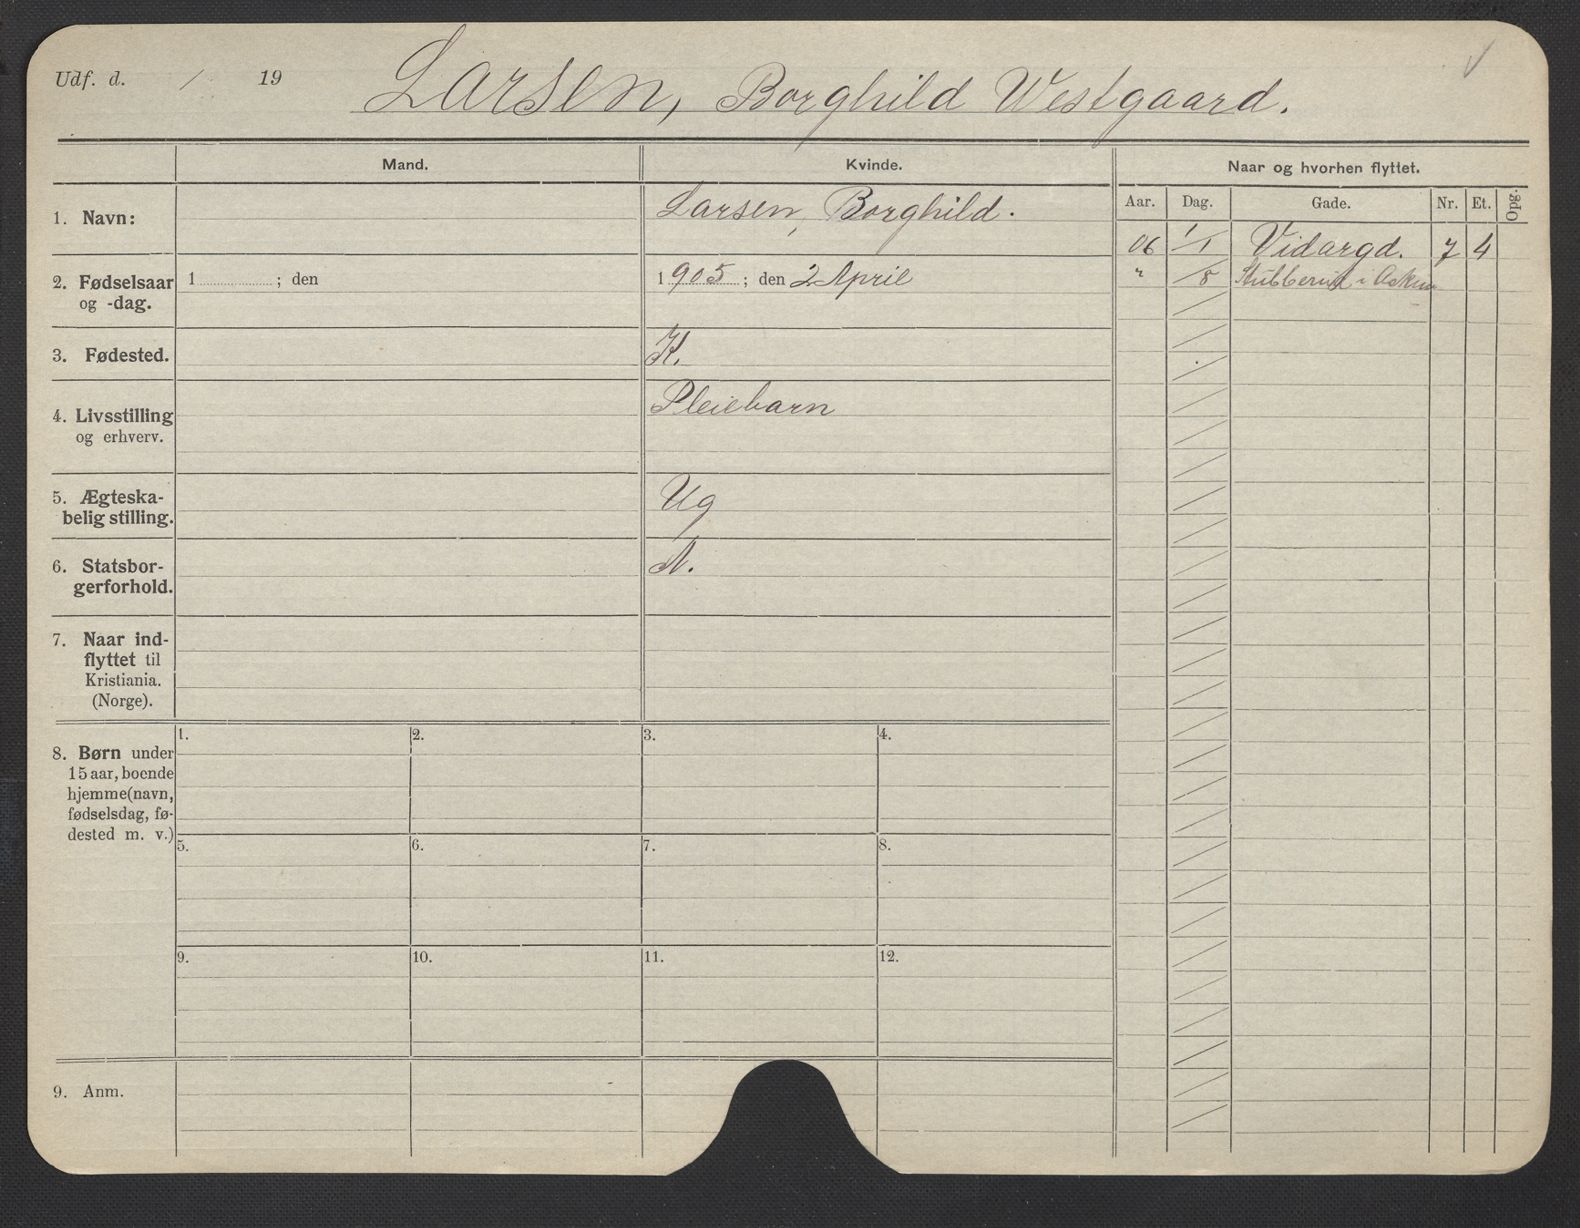 Udf. d. / 19 Larsen, Borghild Westgaard.
Mand. Kvinde. Naar og hvorhen flyttet.
Aar. Dag. Gade. Nr. Et. Opg.
1. Navn: Larsen, Borghild.
06 1/1 Vidargd. 7 4
" /8 Stubberud i Askim
2. Fødselsaar
og -dag.
1 ; den
1905 ; den 2 April
3. Fødested. K.
4. Livsstilling
og erhverv.
Pleiebarn
5. Ægteska-
belig stilling.
Ug
6. Statsbor-
gerforhold.
N.
7. Naar ind-
flyttet til
Kristiania.
(Norge).
8. Børn under
15 aar, boende
hjemme (navn,
fødselsdag, fø-
dested m. v.)
1. 2. 3. 4.
5. 6. 7. 8.
9. 10. 11. 12.
9. Anm.